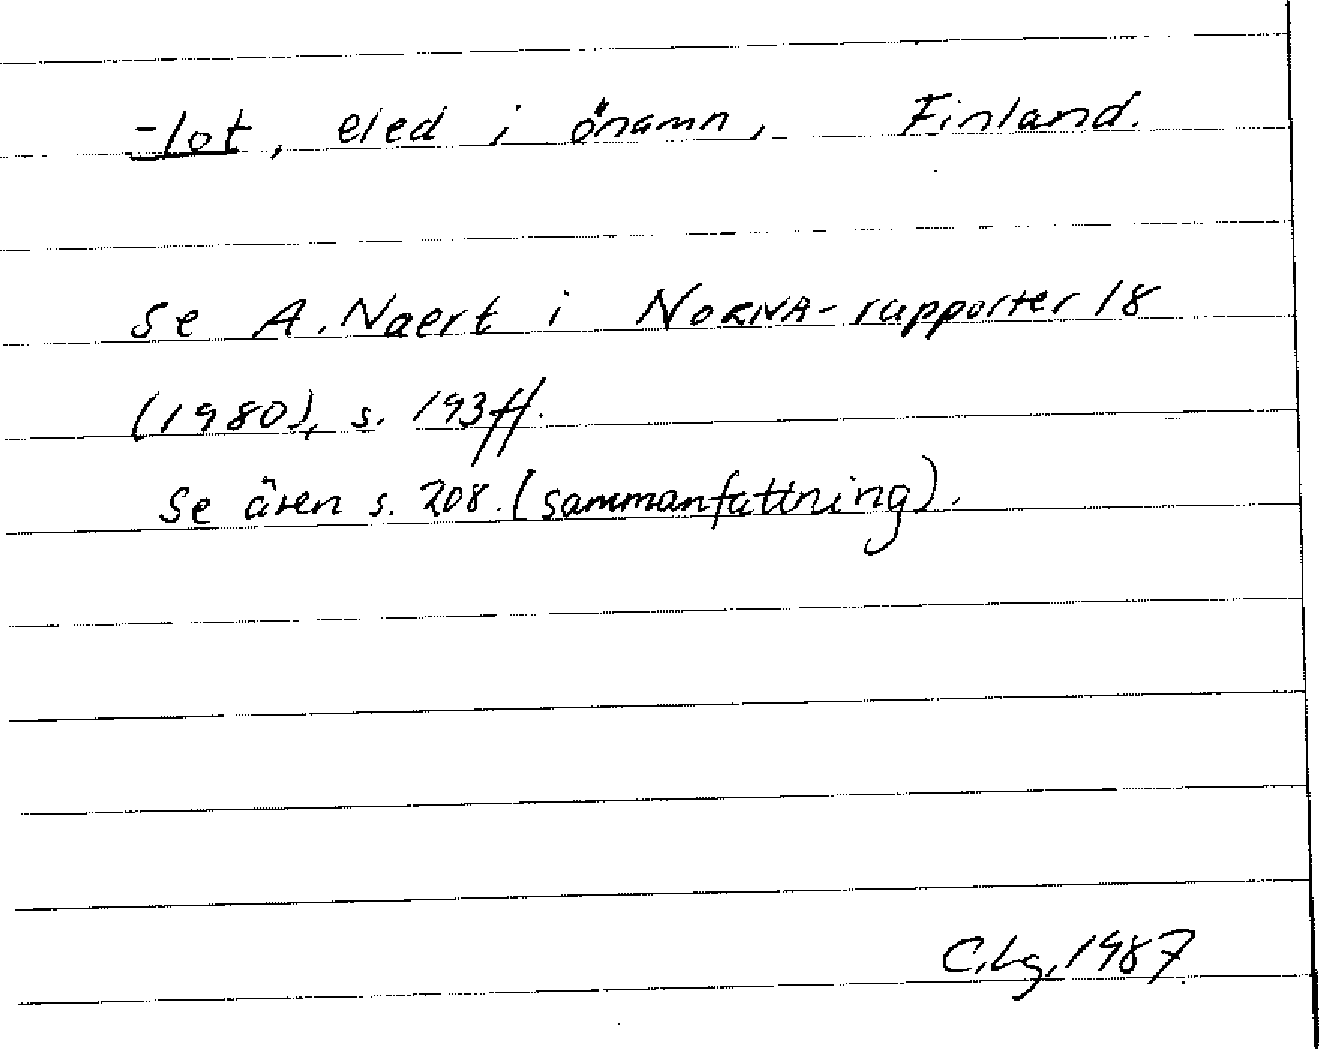 -lot, eled i önamn, Finland.
Se A. Naert i NORNA-rapporter 18
(1980), s. 193ff.
Se även s. 208. (sammanfattning).
C.Lg, 1987.